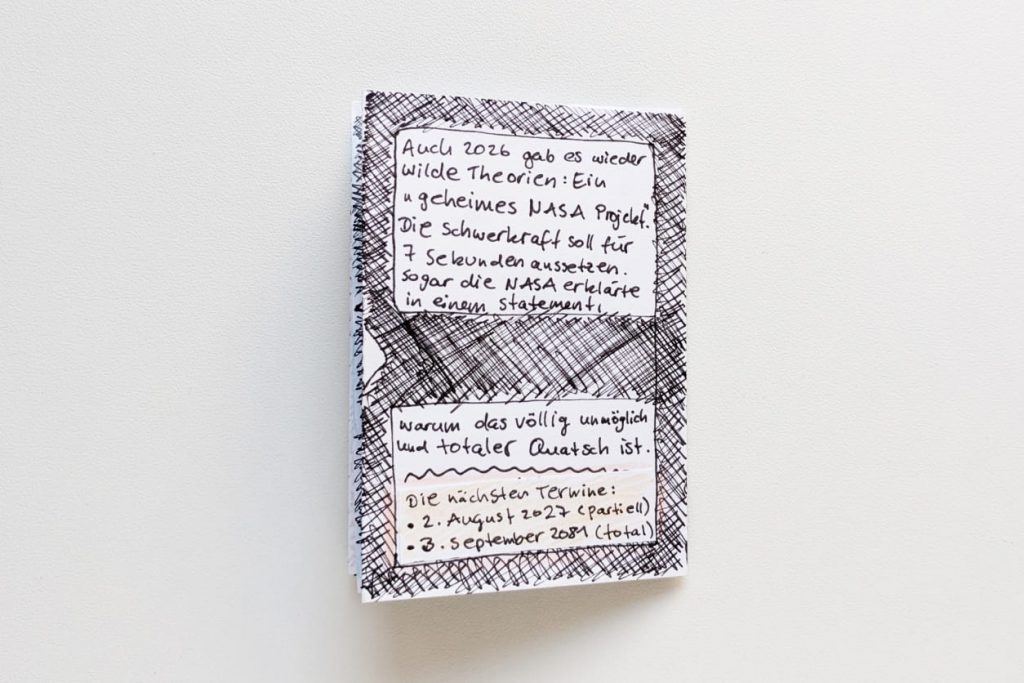 Auch 2026 gab es wieder
wilde Theorien: Ein
"geheimes NASA Projekt".
Die Schwerkraft soll für
7 Sekunden aussetzen.
sogar die NASA erklärte
in einem statement,
warum das völlig unmöglich
und totaler Quatsch ist.
Die nächsten Termine:
• 2. August 2027 (partiell)
• 3. September 2081 (total)